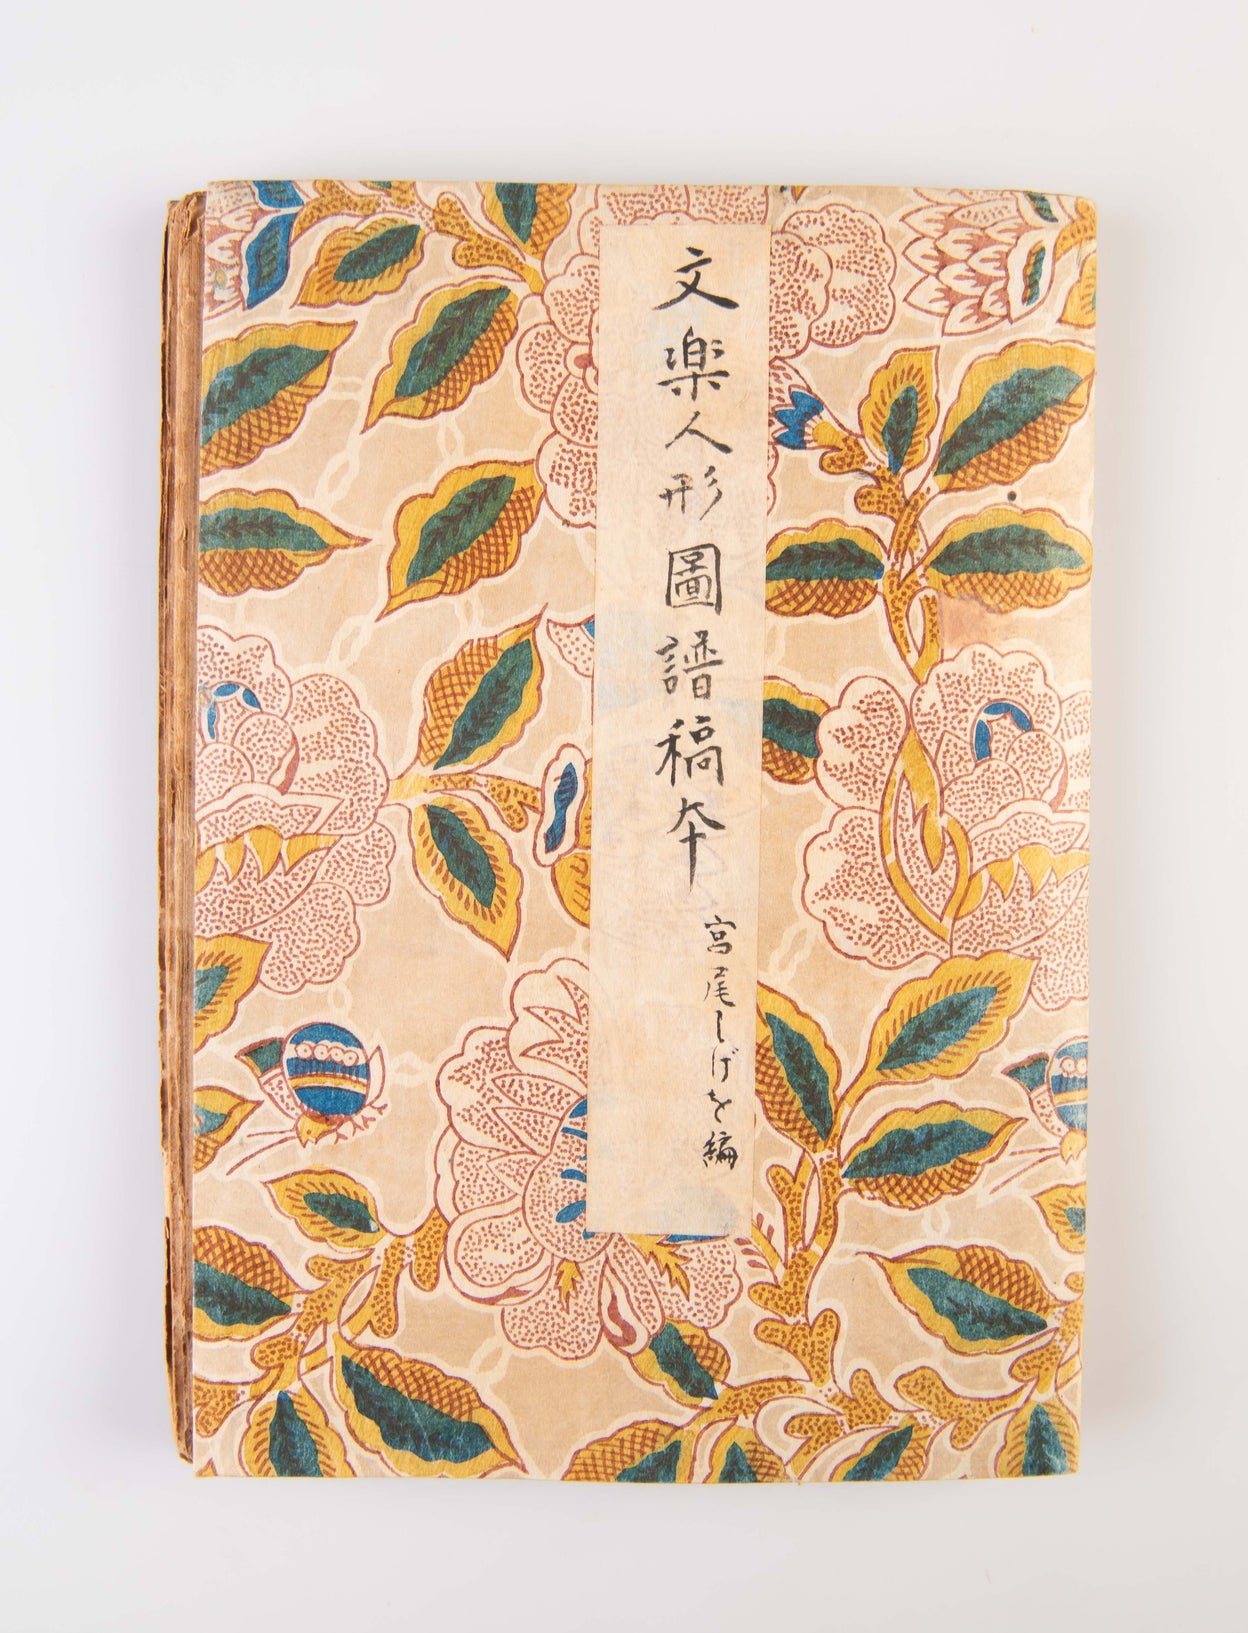 文楽人形圖譜稿本
宮尾しげを編